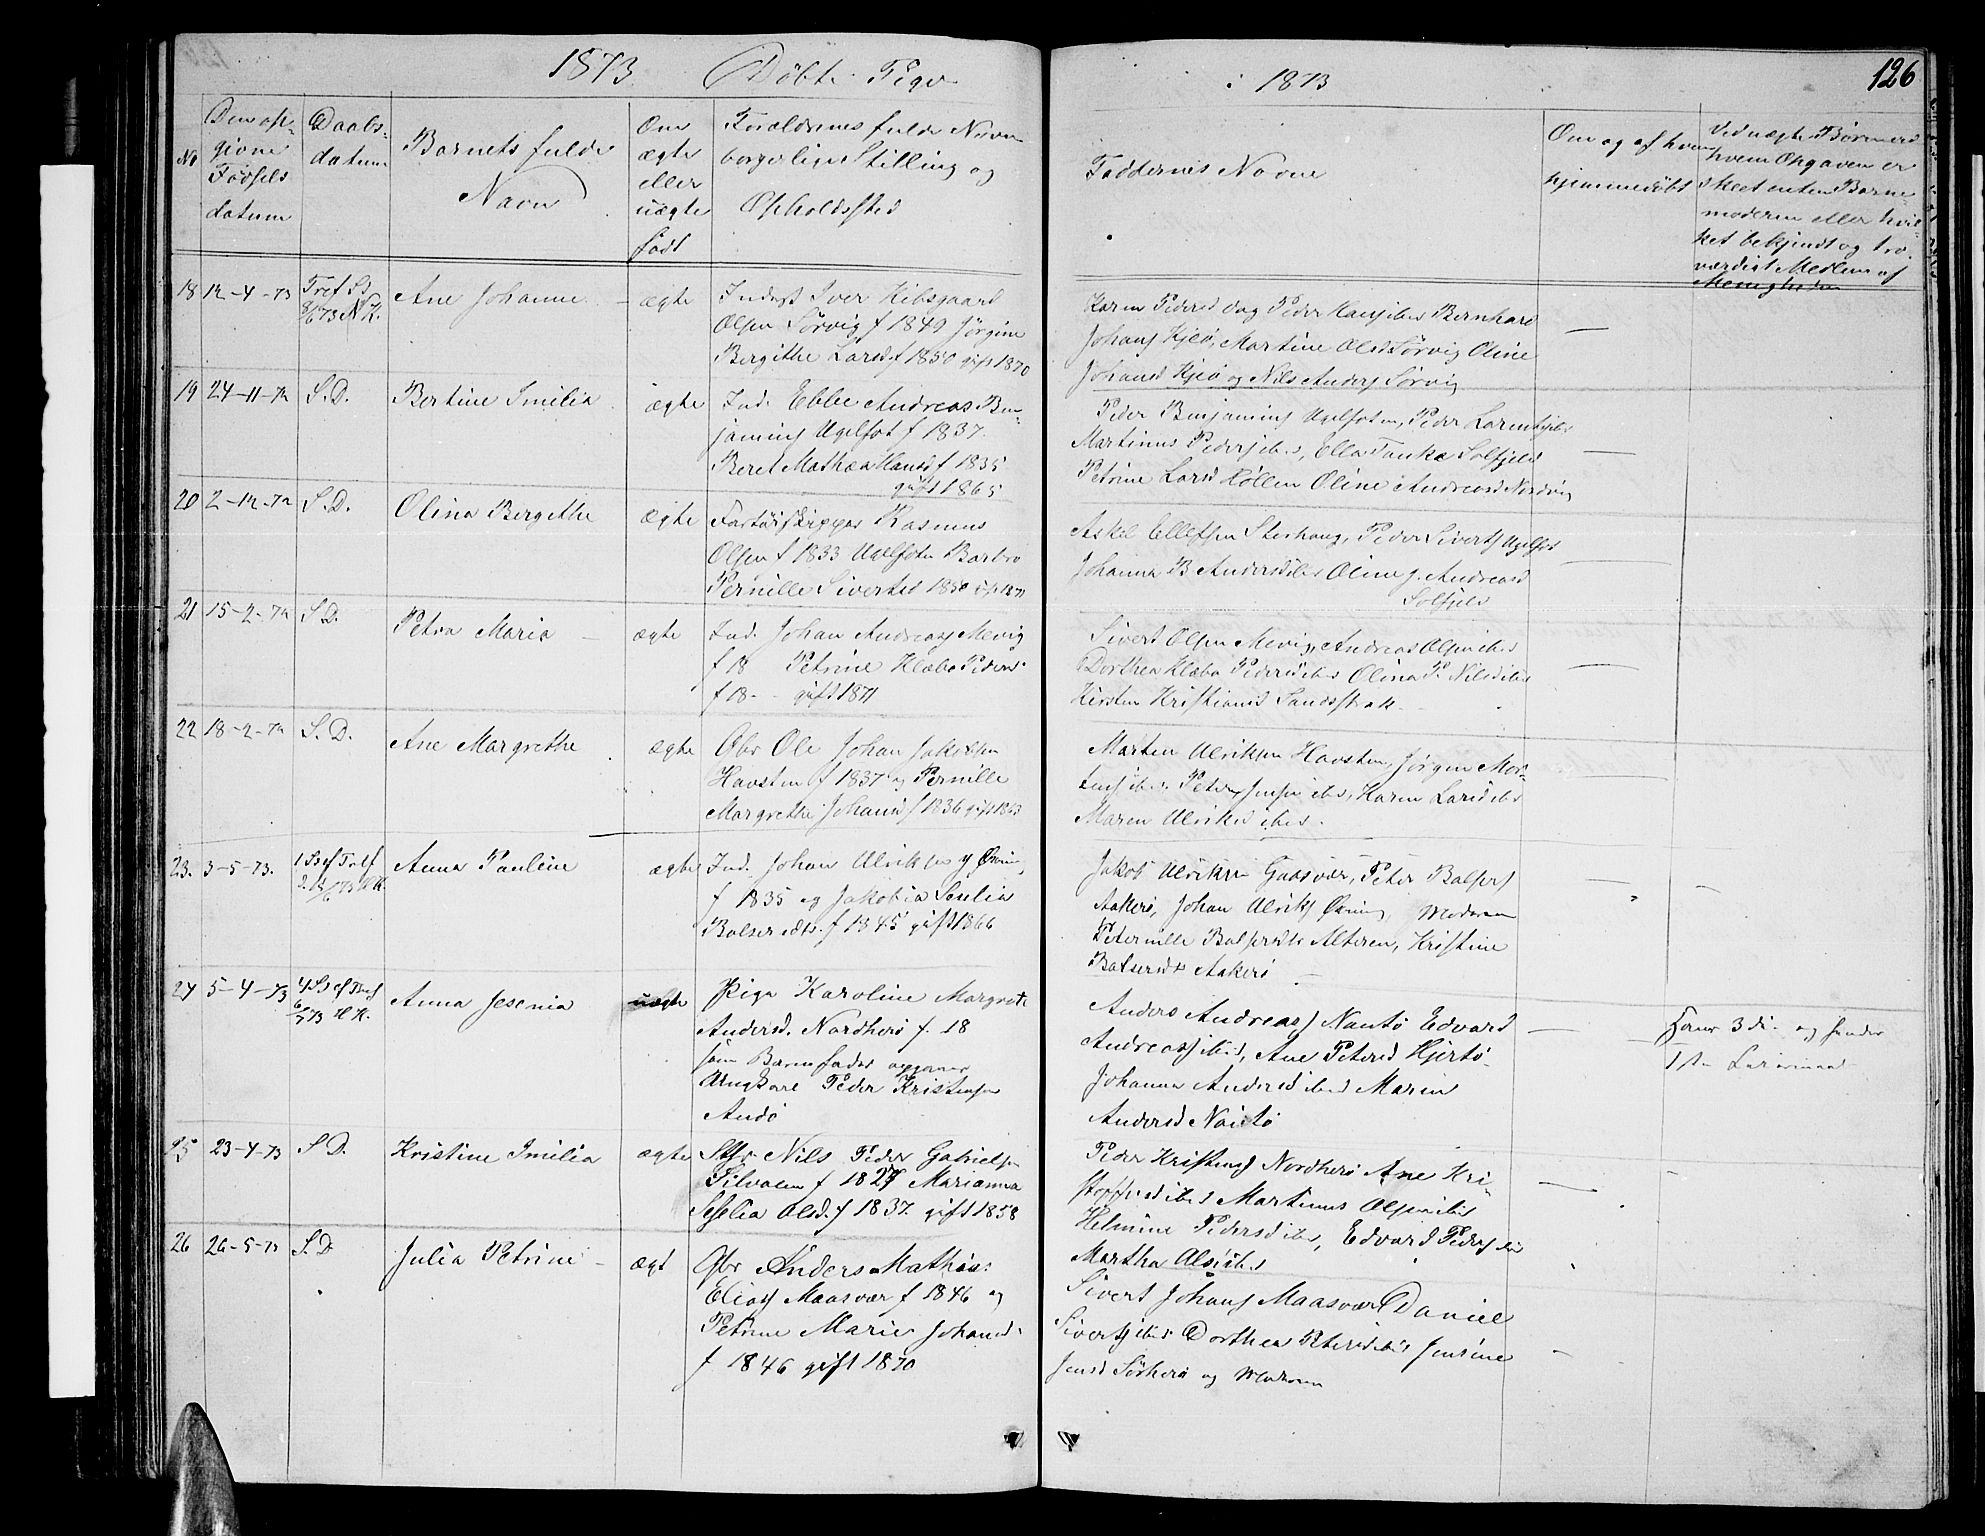 1873 Döbte Piger
i 1873
126
No
Den op-
givne
Födsels
datum
Daabs-
datum
Barnets fulde
Navn
Om
ægte
eller
uægte
født
Forældrenes fulde Navn
borgerlige Stilling og
Opholdssted
Faddernes Navne
Om og af hvem
hjemmedöbt
Ved uægte Børn ved
hvem Opgaven er
skeet enten Barne-
moderen eller hvil-
ket bekjendt og tro-
værdigt Medlem af
Menigheden
18 12-4-73 Tref S
8/6 73 N.K. Ane Johanne ægte Inderst Iver Kibsgaard
Olsen Sörvig f 1849 Jörgine
Bergithe Larsd. f 1850 gift 1870
Karen Pedersd Peder Hansen ibid Bernhard
Johans Hjelö, Martine Olsd Sörvig Oline
Johansd Hjelö og Nils Anders Sörvig
19 24-11-72 S.D. Bertine Imilia ægte Ind. Ebbe Andreas Ben-
jamins Ugelfot f 1837.
Beret Mathea Hansd f 1835
gift 1865
Peder Benjamins Ugelfoten, Peder Larsen ibid
Martinus Peders ibid, Ella Tanke Solfjeld
Petrine Larsd Röllen Oline Andreasd Nordvig
20 2-12-72 S.D. Olina Bergithe ægte Fartöiskipper Rasmus
Olsen f 1833 Ugelfoten Barbro
Pernille Sivertsd 1850 gift 1871
Askel Ellefsen Stenhaug, Peder Siverts Ugelfot
Johanna B Andersd ibid Oline J. Andreasd
Solfjeld
21 15-2-72 S.D. Petra Maria ægte Ind. Johan Andreas Mevig
f 18 Petrine Klæbo Peders
f 18- gift 1871
Sivert Olsen Mevig, Andreas Olsen ibid
Dorthea Klæbo Pedersd ibid Olina P. Nilsd ibid
Kirsten Kristiansd Sandsstrak
22 18-2-72 S.D. Ane Margrethe ægte Gbr Ole Johan Jakobsen
Havsten f 1837 og Pernille
Margrethe Johansd f 1836 gift 1863
Morten Ulriksen Havsten, Jörgen Mor-
tens ibid, Peter Jensen ibid, Karen Larsd ibid
Maren Ulriksd ibid.
23. 3-5-73. Anna Pauline ægte Ind. Johan Ulriksen
f 1835 og Jakobia Seselia
Balsersdtr. f 1845 gift 1866
Jakob Ulriksen Gaasvær, Peter Balsers
Aakerö, Johan Ulriks Moderen
Peternille Balsersdtr Alteren, Kristine
Balsersdtr Aakerö
24 5-4-73 Anna Jesenia uægte Pige Karoline Margrete
Andersd. Nordherö f. 18
som Barnefader opgiver
Ungkarl Peder Kristensen
Andö
Anders Andreas Nautö Edvard
Andreas ibid, Ane Petersd Hjertö
Johanna Andersd ibid Maren
Andersd Nautö
3 og
1
25 23-4-73 S.D. Kristine Imilia ægte Nils Peder Gabrielsen
Silvalen f 1827 Marianna
Seselia Olsd. f 1837. gift 1858
Peder Kristens Nordherö Ane Kri-
stoffersd ibid Martinus Olsen ibid
Helmine Pedersd ibid, Edvard Peders ibid
Martha Olsd ibid
26 26-5-73 S.D Julia Petrine ægt Gbr Anders Mathias
Elias Maasvær f 1846 og
Petrine Marie Johansd.
f 1846 gift 1870
Sivert Johans Maasvær Daniel
Siverts ibid Dorthea Petersd ibid Jensine
Jensd Sörherö og Moderen